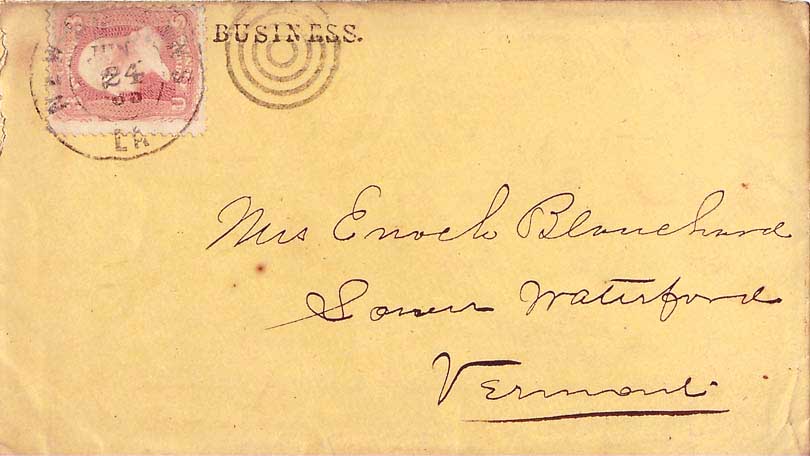 BUSINESS.
24
LA
Mrs Enoch Blanchard
Lower Waterford
Vermont